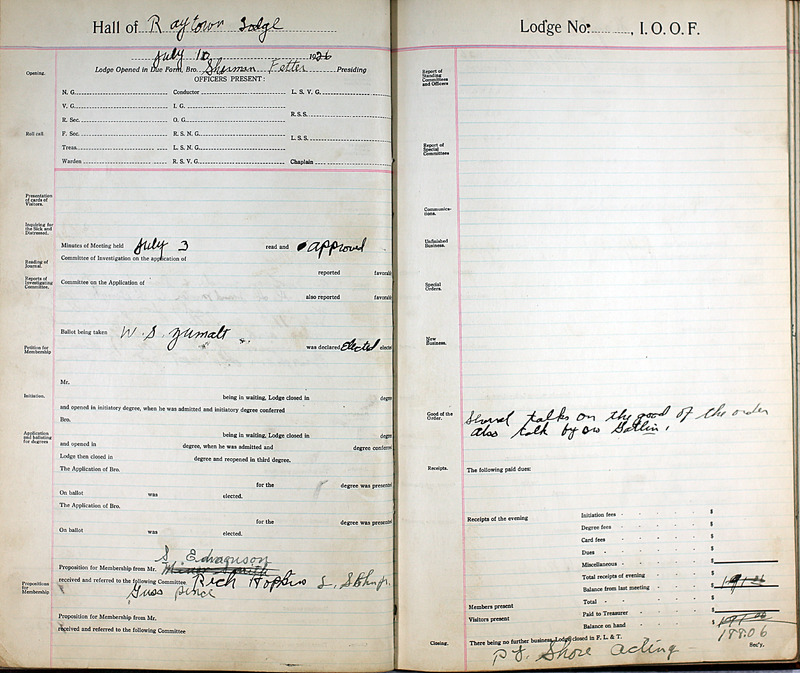 Hall of Raytown Lodge
July 10 1926
Lodge Opened in Due Form, Bro. Sherman Fetter Presiding
Opening.
OFFICERS PRESENT:
N. G. Conductor L. S. V. G.
V. G. I. G.
R. S. S.
R. Sec. O. G.
Roll call.
F. Sec. R. S. N. G.
L. S. S.
Treas. L. S. N. G.
Warden R. S. V. G. Chaplain
Presentation of cards of Visitors.
Inquiring for the Sick and Distressed.
Minutes of Meeting held July 3 read and approved
Reading of Journal.
Committee of Investigation on the application of
reported favorab
Reports of Investigating Committee.
Committee on the Application of
also reported favorab
Ballot being taken W. S. Zumalt
Petition for Membership
was declared Elected electe
Mr.
Initiation.
being in waiting, Lodge closed in degre
and opened in initiatory degree, when he was admitted and initiatory degree conferred
Bro.
Application and balloting for degrees
being in waiting, Lodge closed in degre
and opened in degree, when he was admitted and degree conferre
Lodge then closed in degree and reopened in third degree.
The Application of Bro.
for the degree was presente
On ballot was elected.
The Application of Bro.
for the degree was presente
On ballot was elected.
S.
Proposition for Membership from Mr.
Propositions for Membership
received and referred to the following Committee Rich Hopkins
Guss
Proposition for Membership from Mr.
received and referred to the following Committee
Lodge No. , I. O. O. F.
Report of Standing Committees and Officers
Report of Special Committees
Communications.
Unfinished Business.
Special Orders.
New Business.
Good of the Order.
Several talks on the good of the order
also talk by Gatlin.
Receipts.
The following paid dues:
Receipts of the evening
Initiation fees $
Degree fees $
Card fees $
Dues $
Miscellaneous $
Total receipts of evening $
Balance from last meeting $
Members present
Total $
Visitors present
Paid to Treasurer $
Balance on hand $
188.06
Closing.
There being no further business, Lodge closed in F. L. & T.
Shore acting Sec'y.